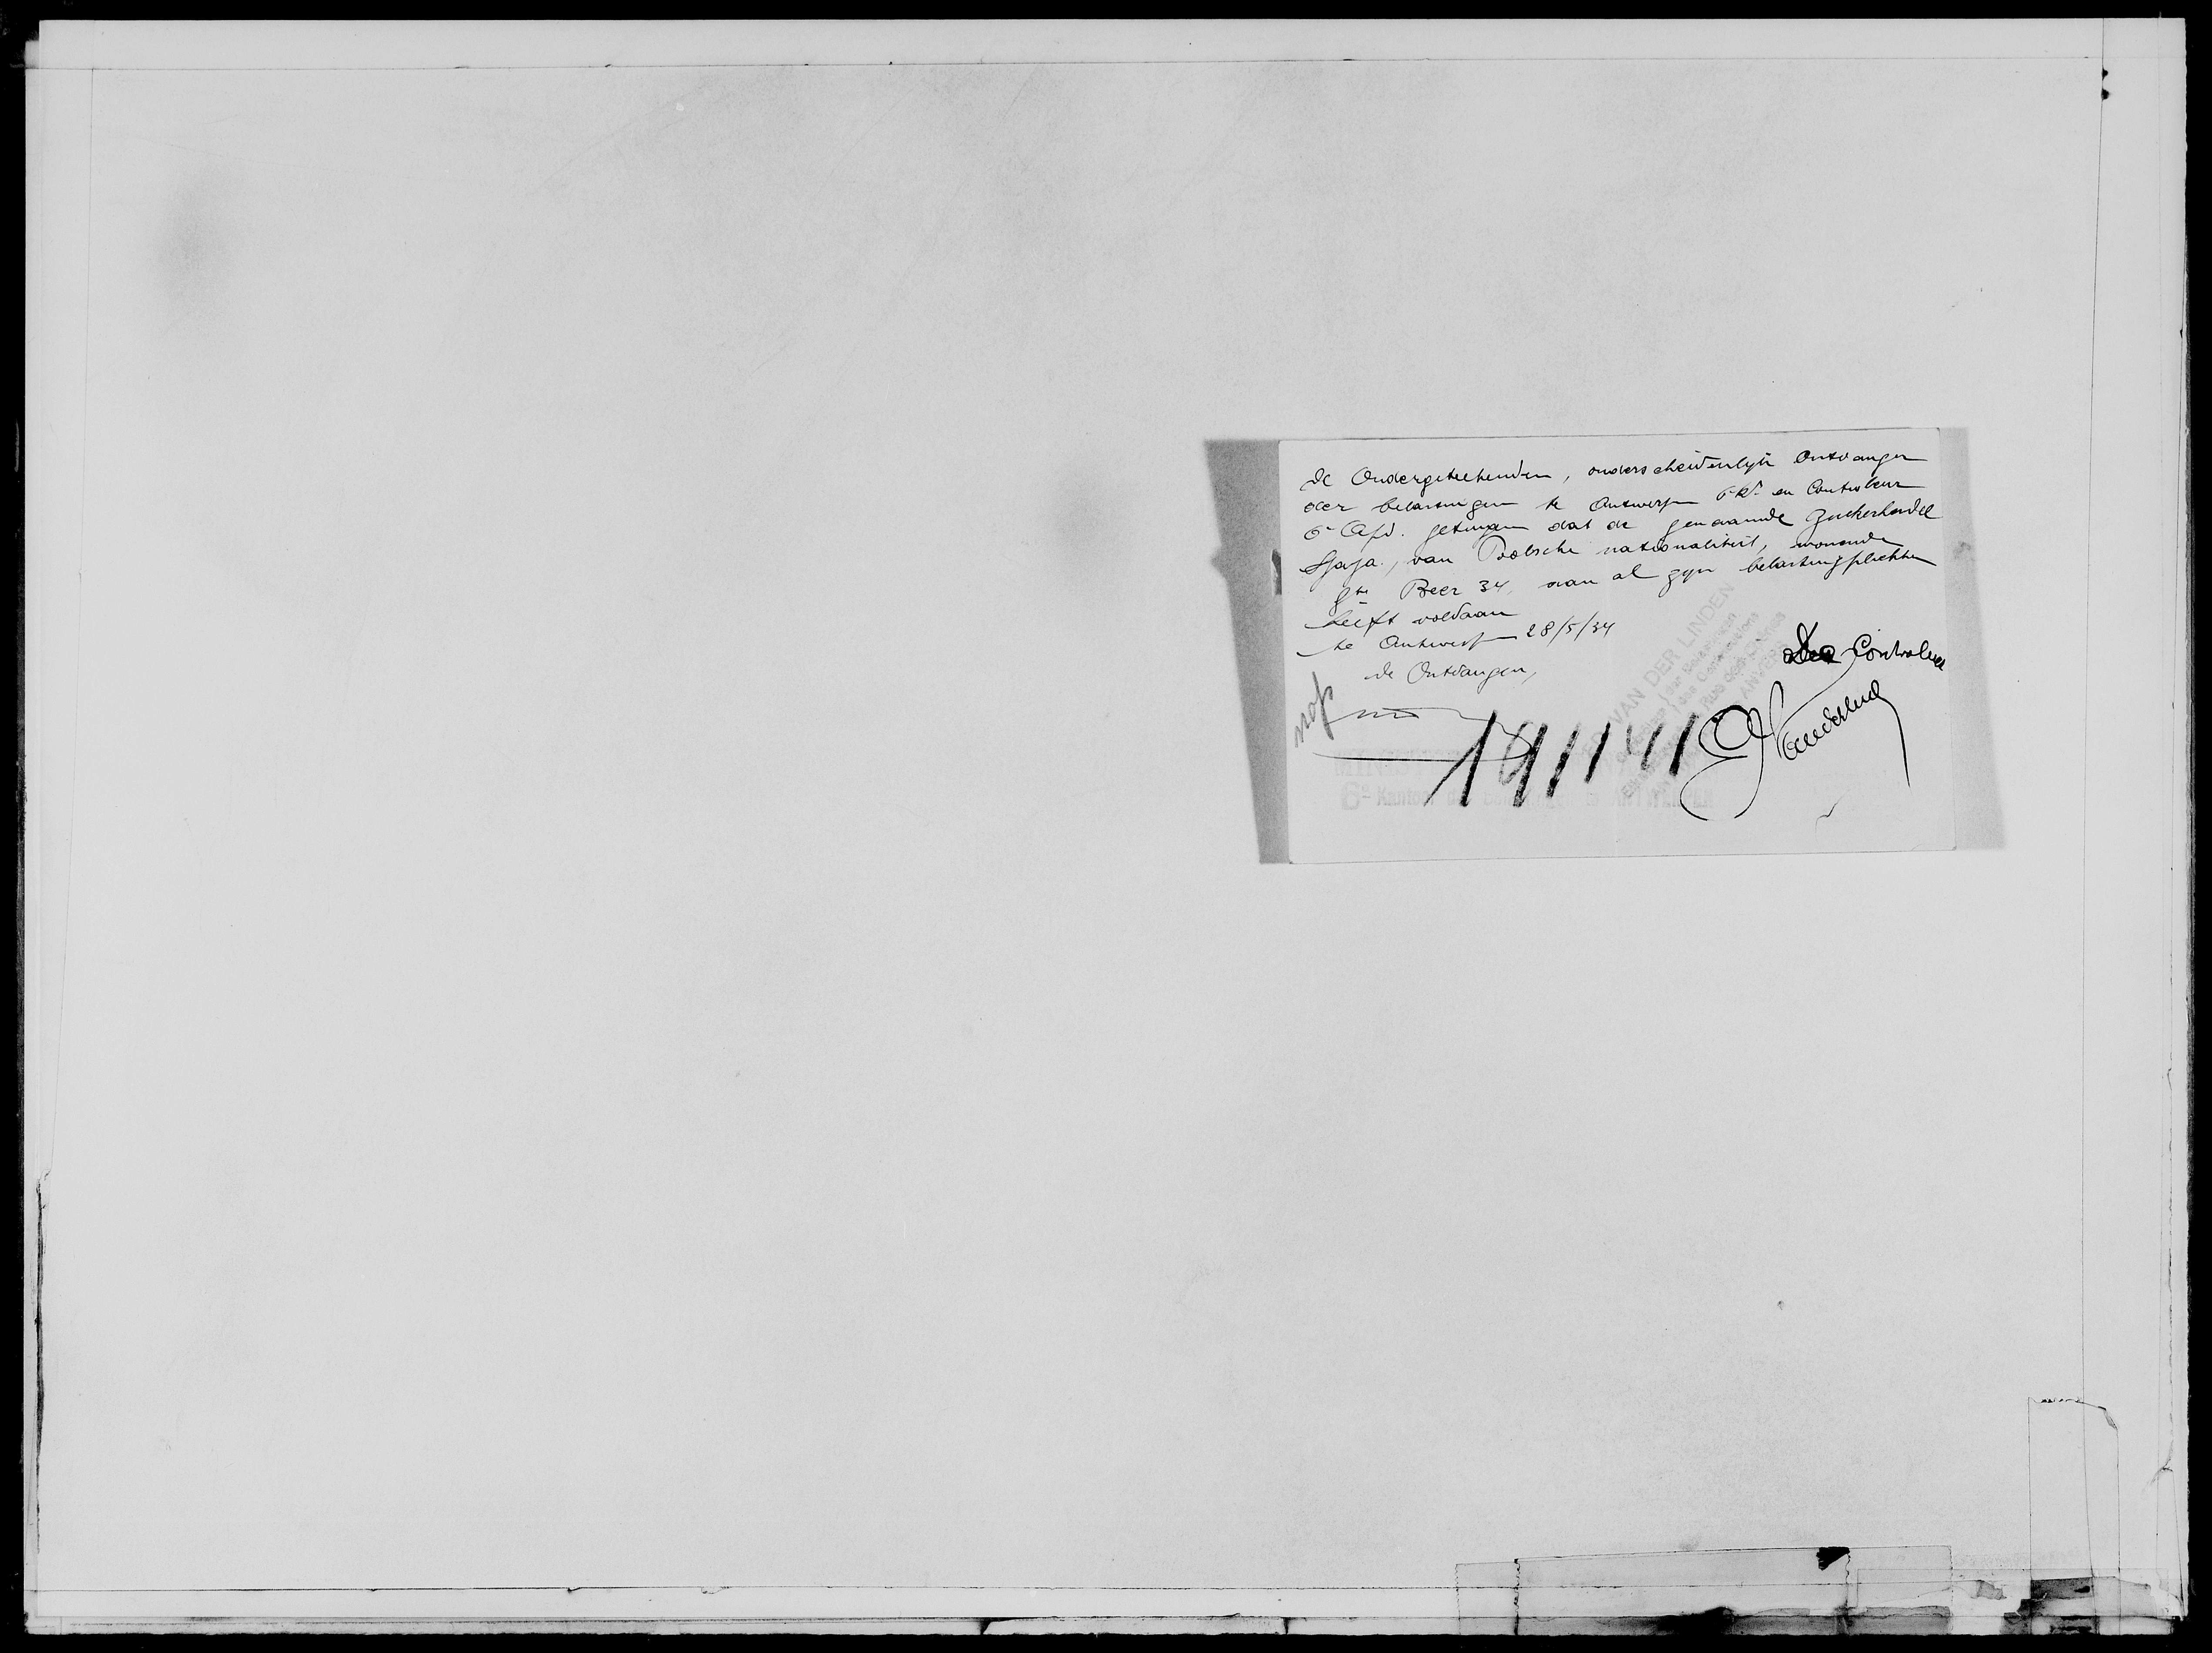 De Ondergeteekenden, onderscheidenlijk Ontvanger
der belastingen te Antwerpen 6e Kt. en Controleur
6e Afd. getuigen dat de genaamde Zuckerhandel
Sjaja, van Poolsche nationaliteit, wonende
gte Beer 34, aan al zijn belastingplichten
heeft voldaan
te Antwerpen 28/5/34
de Ontvanger,
De Controleur
191141
VAN DER LINDEN
6e Kantoor der Belastingen te ANTWERPEN